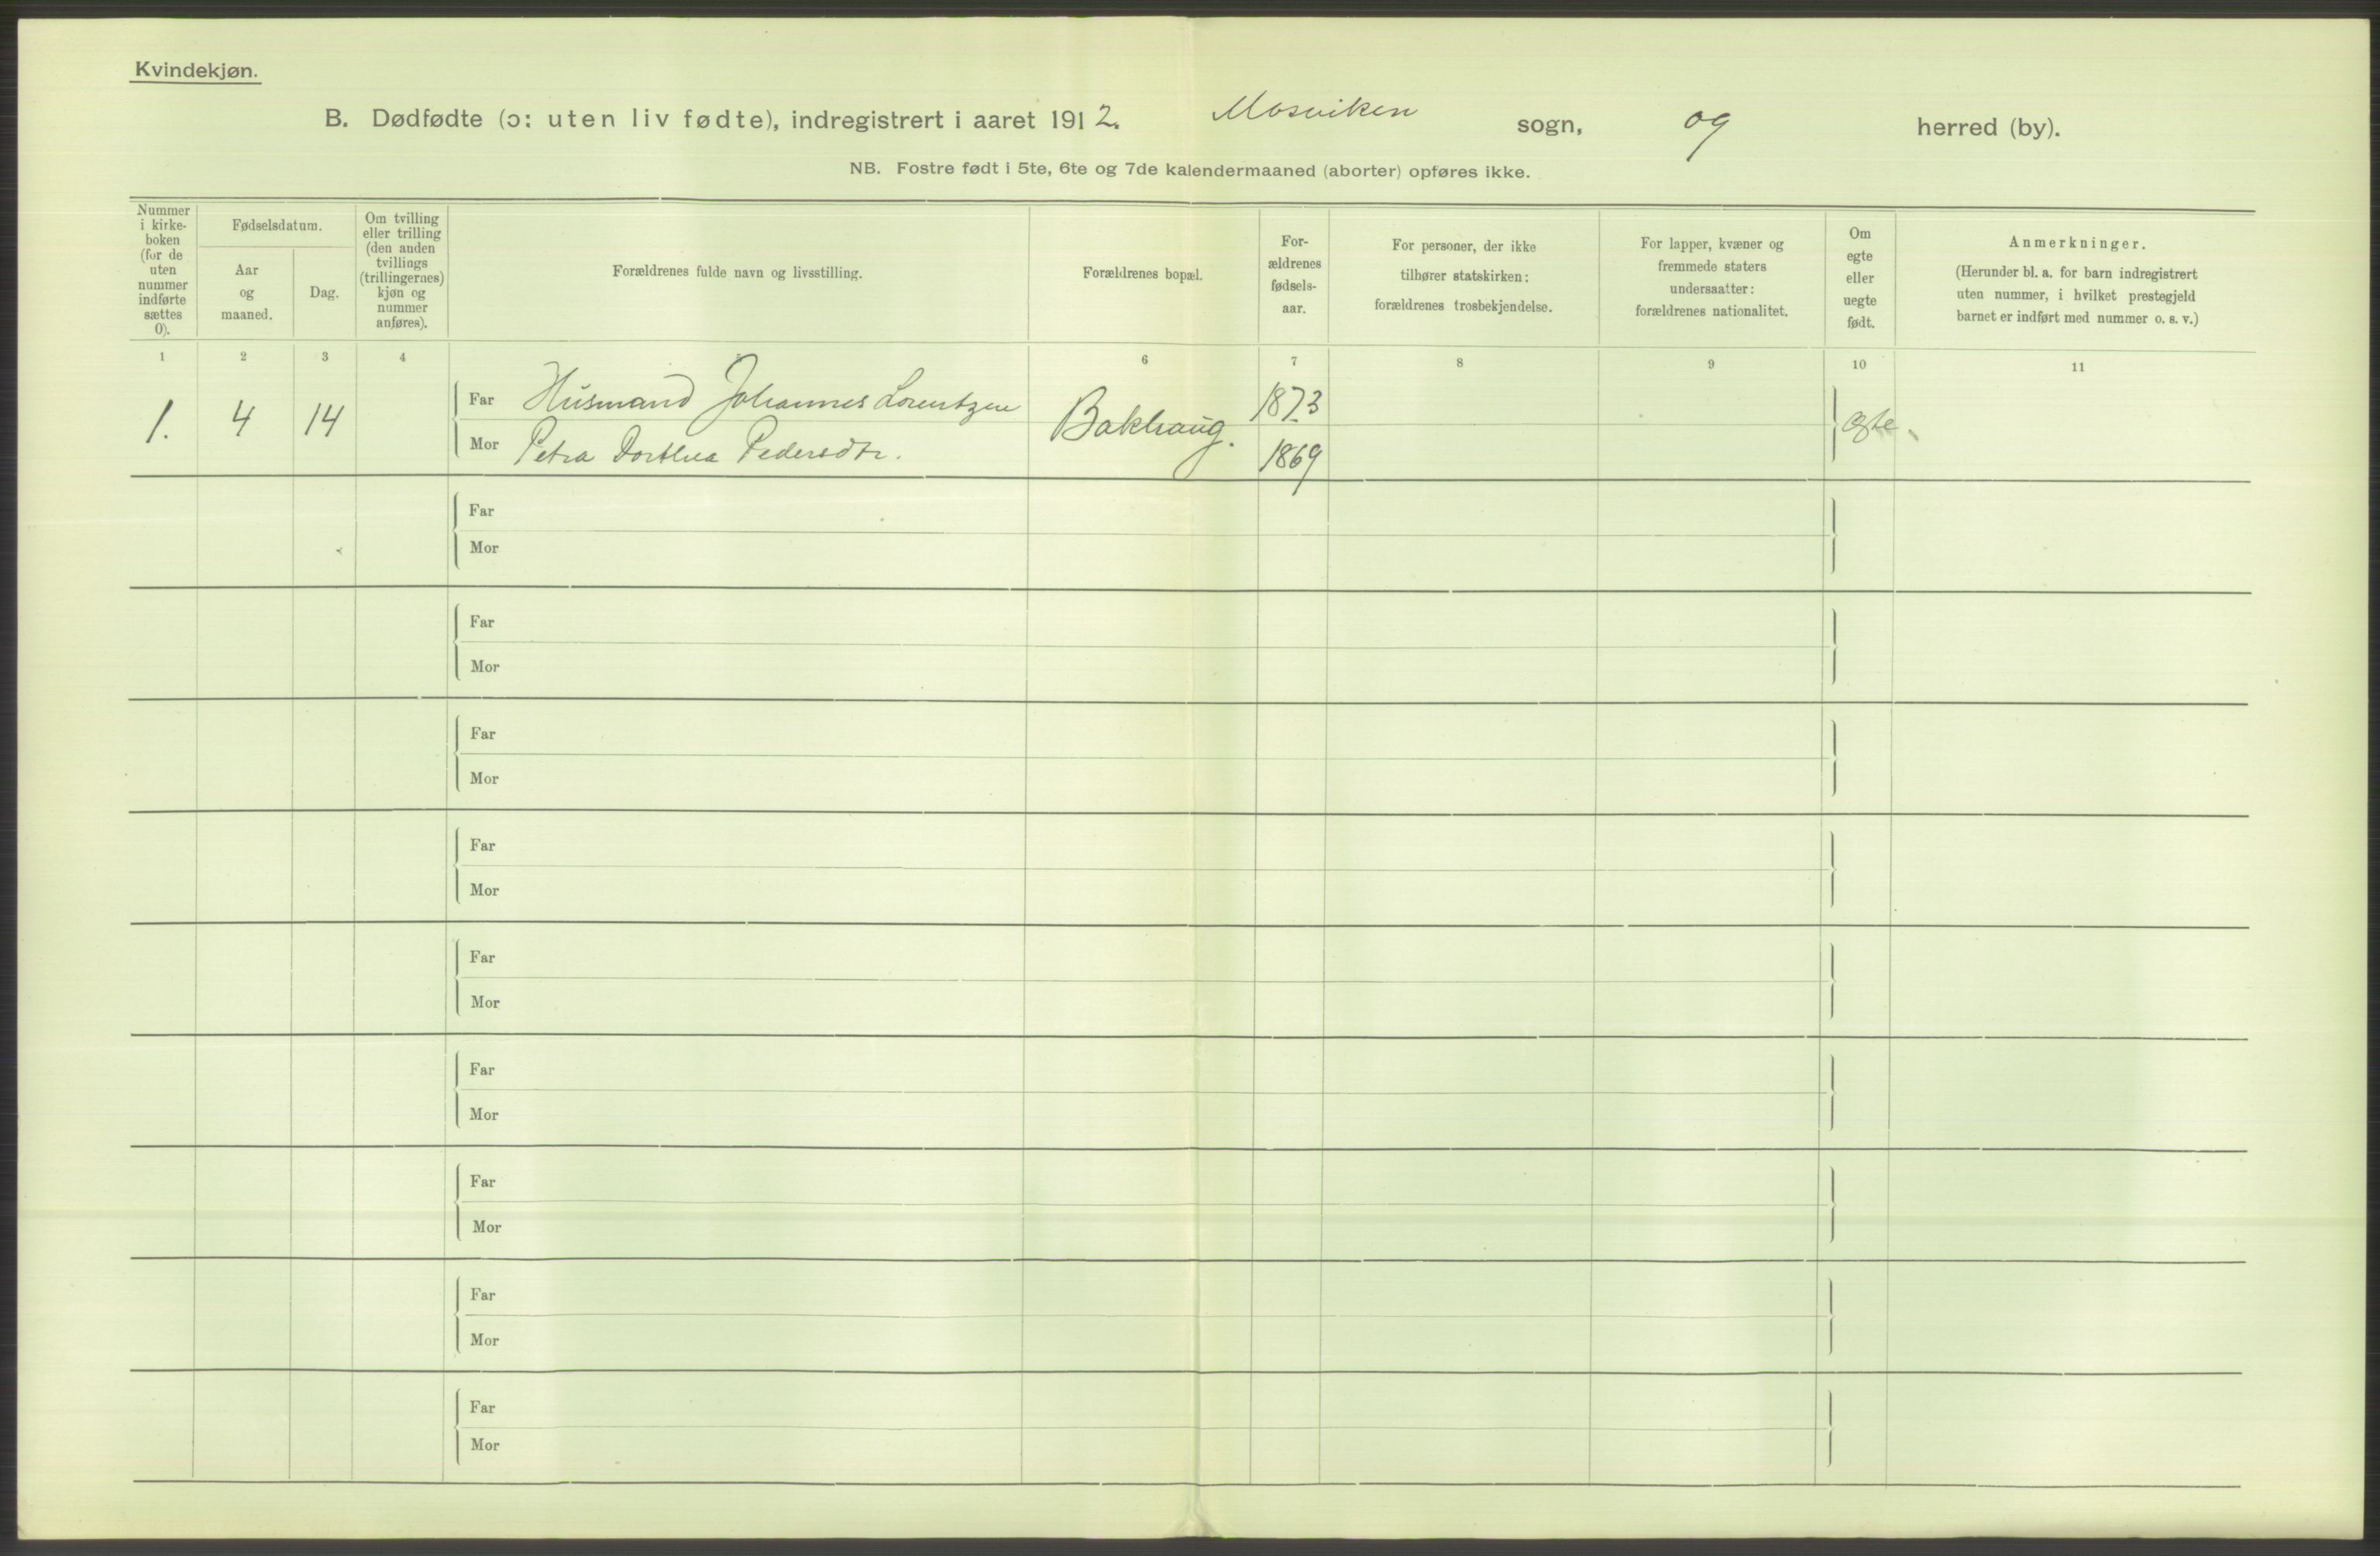 Kvindekjøn.
B. Dødfødte (ɔ: uten liv fødte), indregistrert i aaret 1912. Mosviken sogn, og herred (by).
NB. Fostre født i 5te, 6te og 7de kalendermaaned (aborter) opføres ikke.
Nummer
i kirke-
boken
(for de
uten
nummer
indførte
sættes
0).
Fødselsdatum.
Aar
og
maaned.
Dag.
Om tvilling
eller trilling
(den anden
tvillings
(trillingernes)
kjøn og
nummer
anføres).
Forældrenes fulde navn og livsstilling.
Forældrenes bopæl.
For-
ældrenes
fødsels-
aar.
For personer, der ikke
tilhører statskirken:
forældrenes trosbekjendelse.
For lapper, kvæner og
fremmede staters
undersaatter:
forældrenes nationalitet.
Om
egte
eller
uegte
født.
Anmerkninger.
(Herunder bl. a. for barn indregistrert
uten nummer, i hvilket prestegjeld
barnet er indført med nummer o. s. v.)
1 2 3 4 5 6 7 8 9 10 11
1. 4 14
Far Husmand Johannes Lorentzen
Mor Petra Dorthea Pedersdtr.
Bakhaug.
1873
1869
Egte.
Far
Mor
Far
Mor
Far
Mor
Far
Mor
Far
Mor
Far
Mor
Far
Mor
Far
Mor
Far
Mor